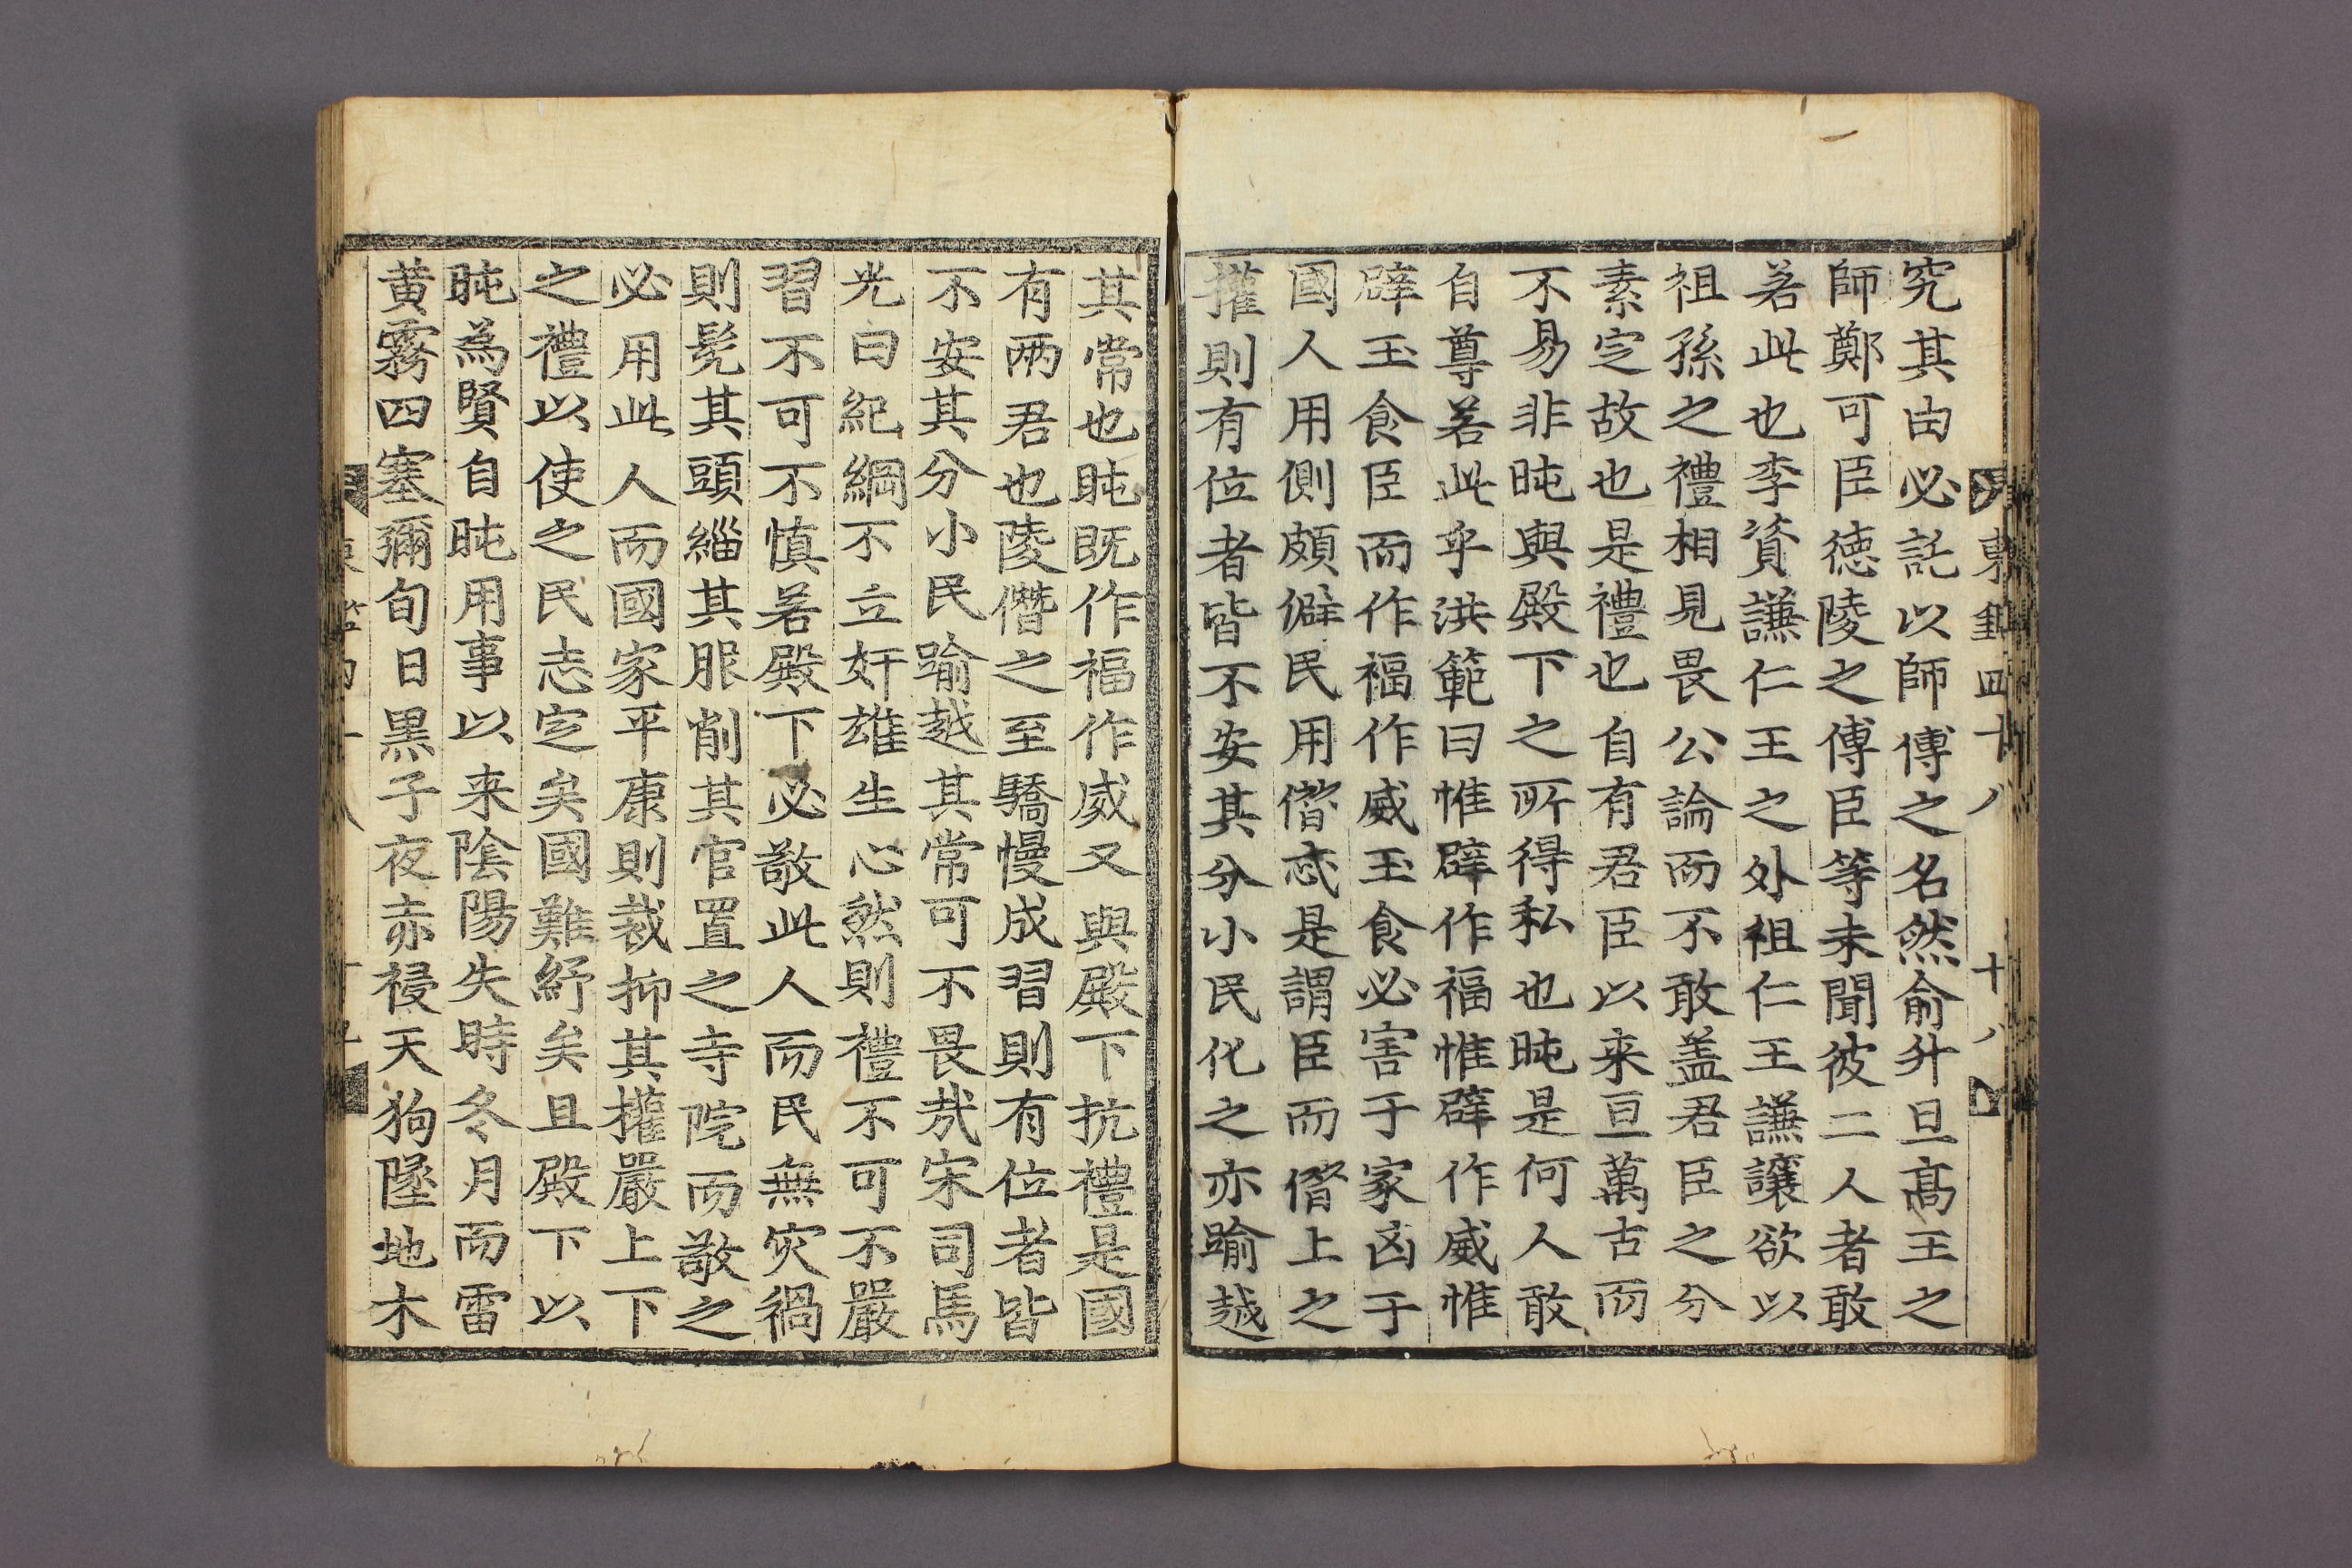 東鑑四十八 十八
究其由必託以師傅之名然俞升旦高王之
師鄭可臣德陵之傅臣等未聞彼二人者敢
若此也李資謙仁王之外祖仁王謙讓欲以
祖孫之禮相見畏公論而不敢盖君臣之分
素定故也是禮也自有君臣以来亘萬古而
不易非旽與殿下之所得私也旽是何人敢
自尊若此乎洪範曰惟辟作福惟辟作威惟
辟玉食臣而作福作威玉食必害于家凶于
國人用側頗僻民用僭忒是謂臣而僭上之
權則有位者皆不安其分小民化之亦踰越
其常也旽既作福作威又與殿下抗禮是國
有兩君也陵僭之至驕慢成習則有位者皆
不安其分小民踰越其常可不畏㢤宋司馬
光曰紀綱不立奸雄生心然則禮不可不嚴
習不可不慎若殿下必敬此人而民無灾禍
則髡其頭緇其服削其官置之寺院而敬之
必用此人而國家平康則裁抑其權嚴上下
之禮以使之民志定矣國難紓矣且殿下以
旽為賢自旽用事以来陰陽失時冬月而雷
黄霧四塞彌旬日黒子夜赤祲天狗墜地木